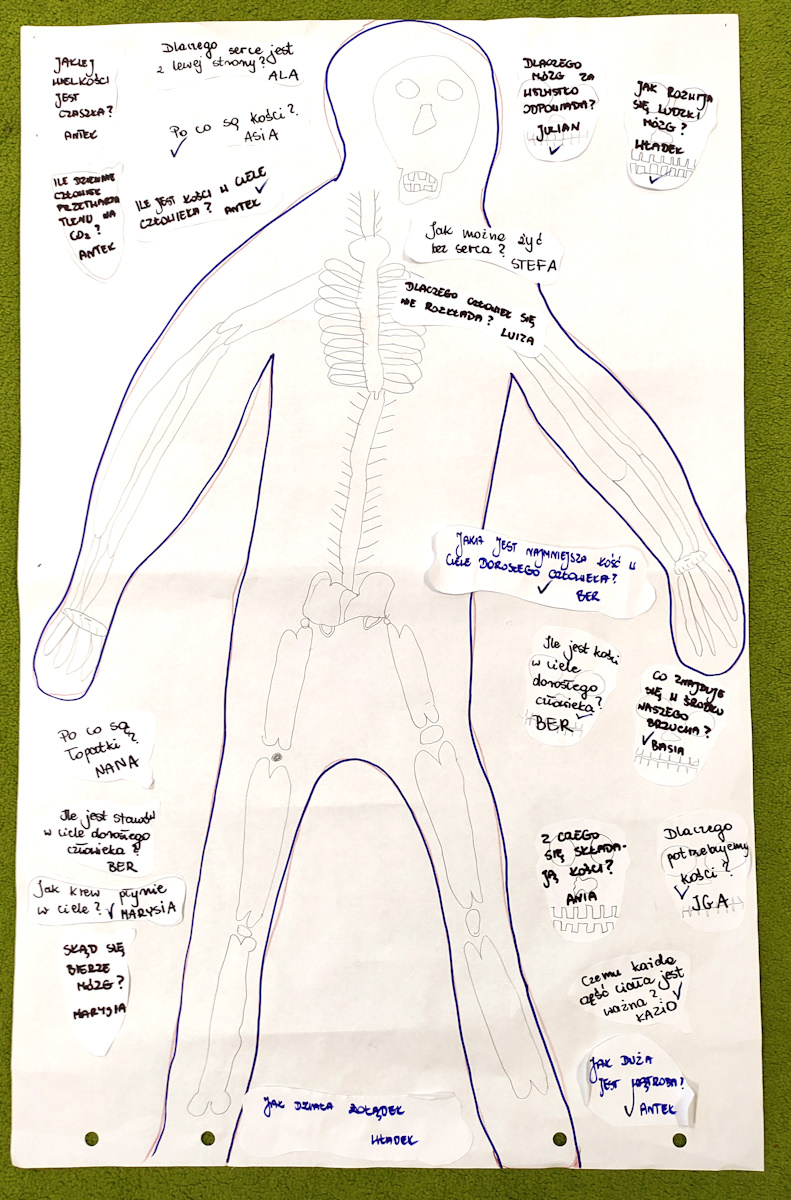 JAKIEJ
WIELKOŚCI
JEST
CZASZKA?
ANTEK
Dlaczego serce jest
z lewej strony?
ALA
Po co są kości?
ASIA
ILE DZIENNIE
CZŁOWIEK
PRZETWARZA
TLENU NA
CO₂?
ANTEK
ILE JEST KOŚCI W CIELE
CZŁOWIEKA? ANTEK
DLACZEGO
MÓZG ZA
WSZYSTKO
ODPOWIADA?
JULIAN
JAK ROZWIJA
SIĘ LUDZKI
MÓZG?
WŁADEK
Jak można żyć
bez serca?
STEFA
DLACZEGO CZŁOWIEK SIĘ
NIE ROZKŁADA? LUIZA
JAKA JEST NAJMNIEJSZA KOŚĆ W
CIELE DOROSŁEGO CZŁOWIEKA?
BER
Ile jest kości
w ciele
dorosłego
człowieka?
BER
CO ZNAJDUJE
SIĘ W ŚRODKU
NASZEGO
BRZUCHA?
BASIA
Po co są
łopatki?
NANA
Ile jest stawów
w ciele dorosłego
człowieka?
BER
Jak krew płynie
w ciele? MARYSIA
SKĄD SIĘ
BIERZE
MÓZG?
MARYSIA
Z CZEGO
SIĘ SKŁADA-
JĄ KOŚCI?
ANIA
Dlaczego
potrzebujemy
kości?
IGA
Czemu każda
część ciała jest
ważna?
KAZIO
JAK DUŻA
JEST WĄTROBA?
ANTEK
JAK DZIAŁA ŻOŁĄDEK
WŁADEK